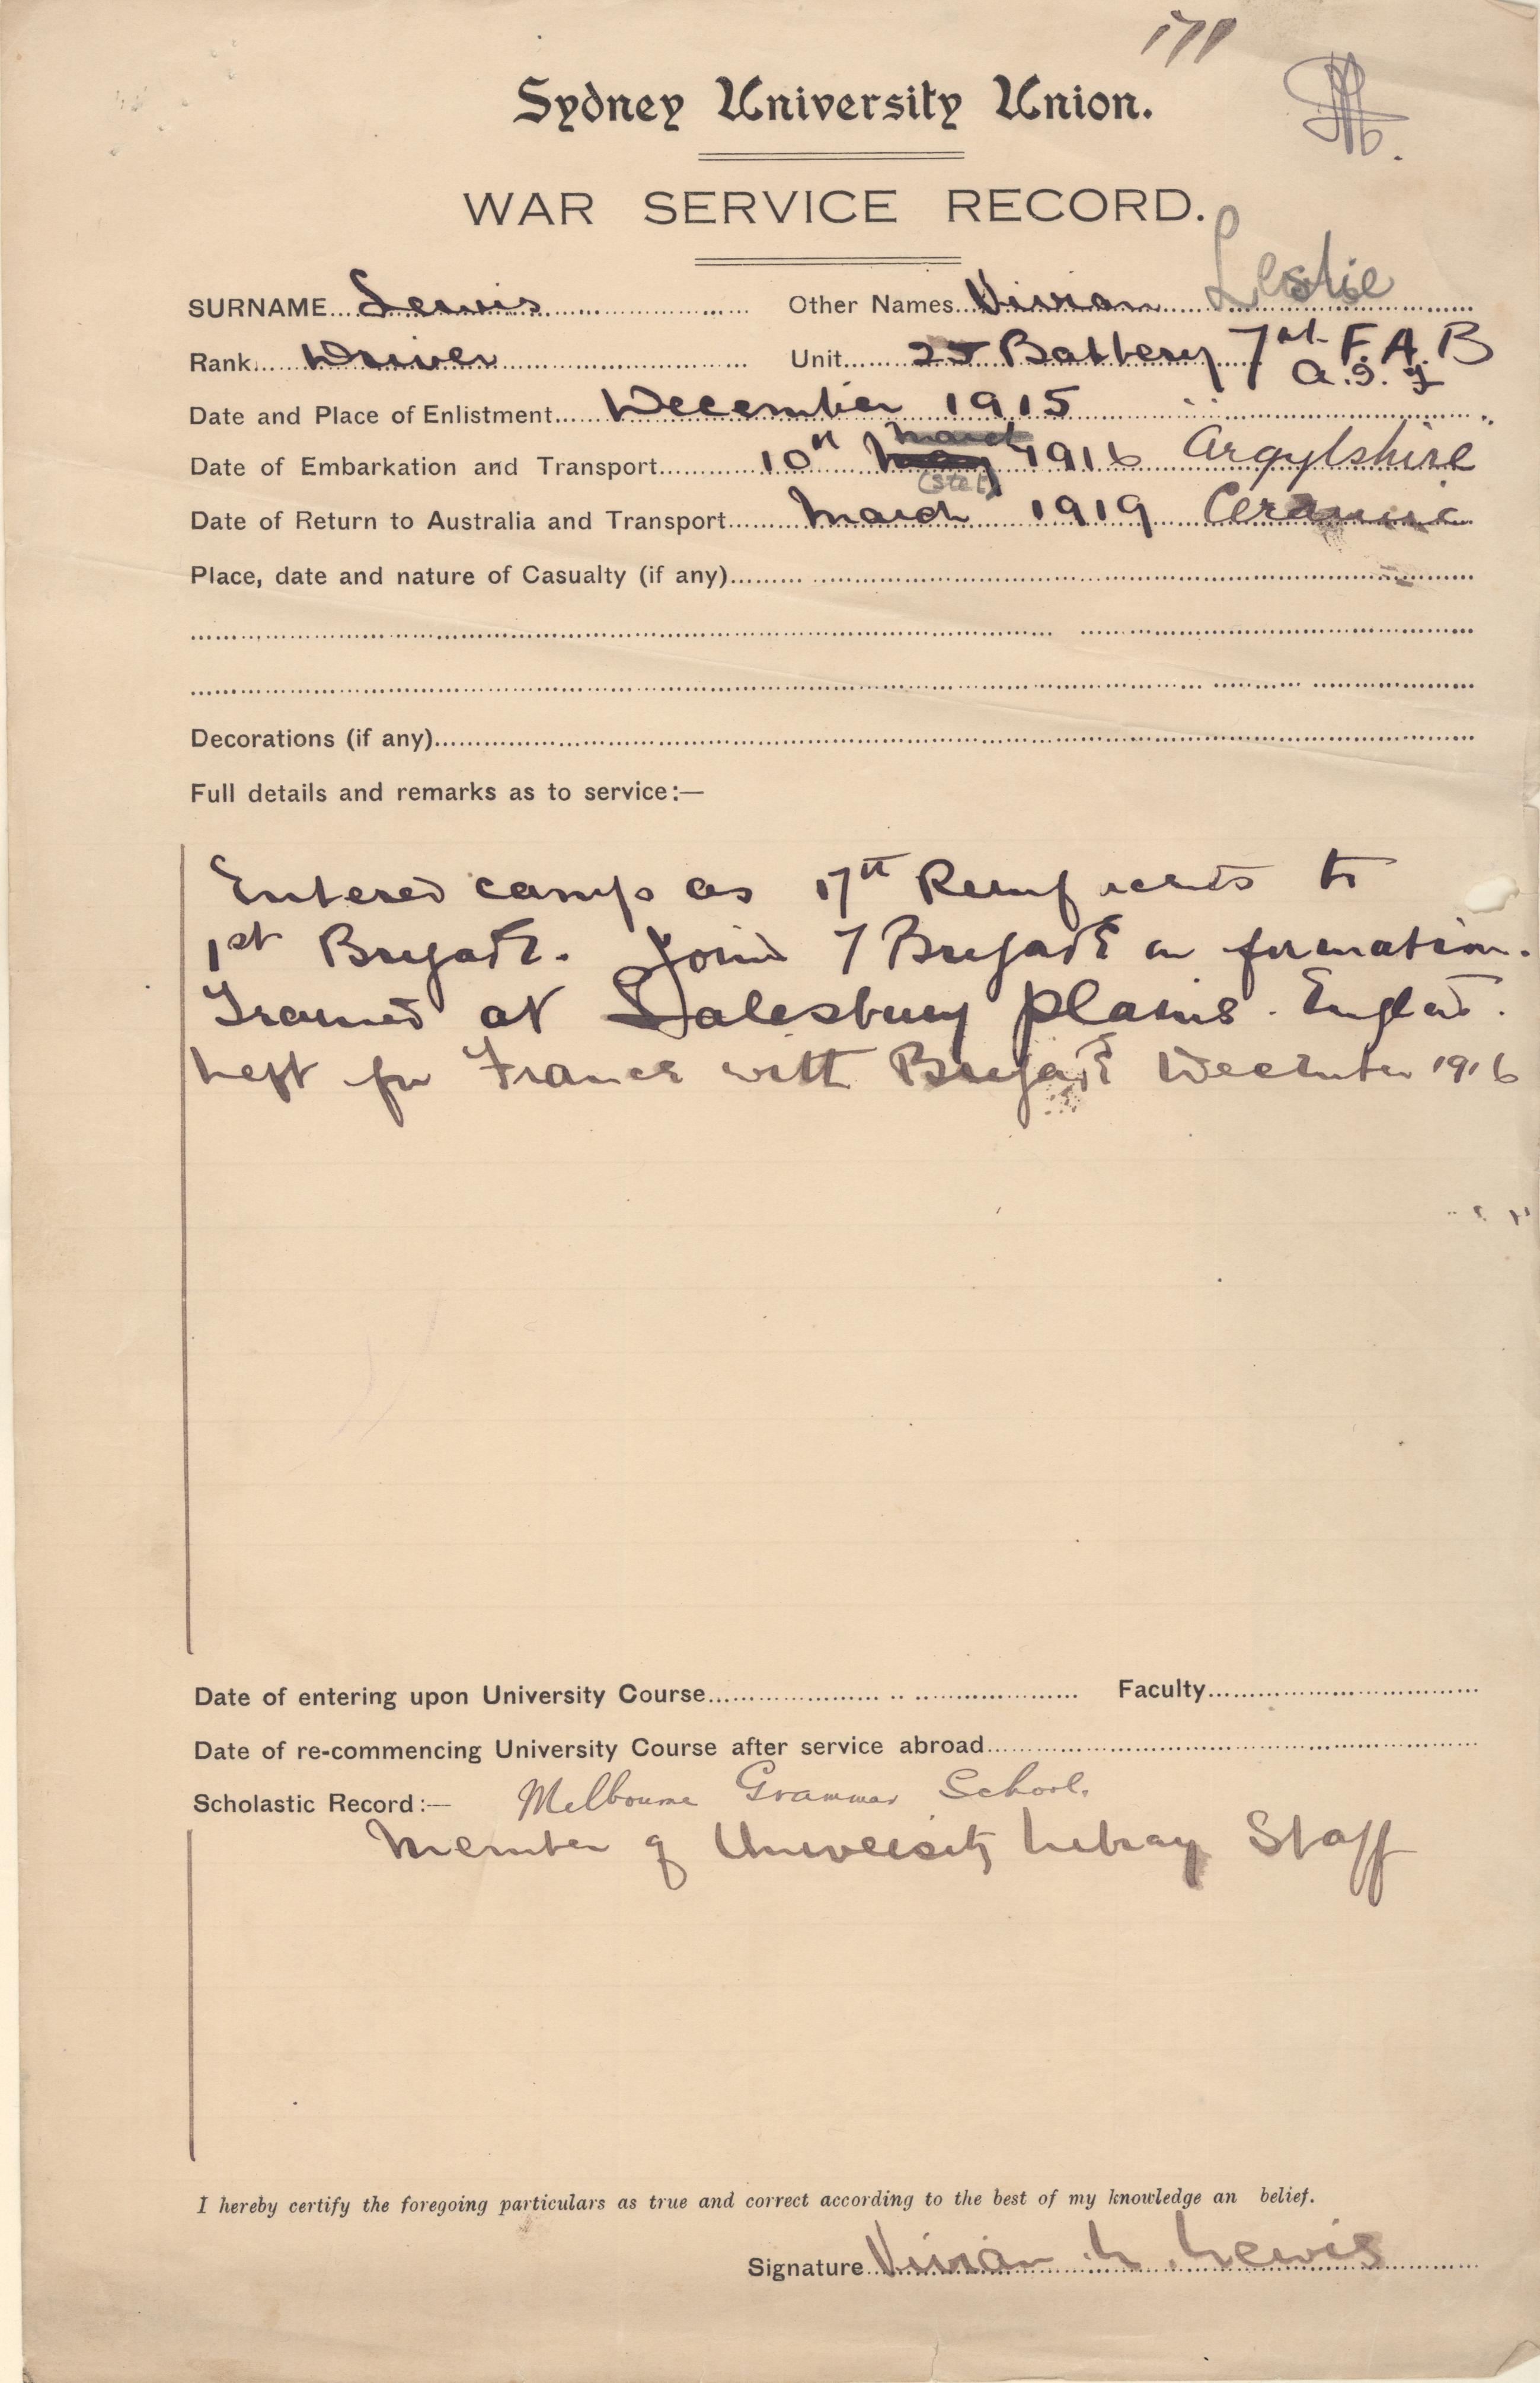 Sydney University Union.
WAR SERVICE RECORD.
SURNAME Lewis Other Names Vivian Leslie
Rank Driver Unit 25 Battery 7th F.A.B
A.I.F
Date and Place of Enlistment December 1915
march
Date of Embarkation and Transport 10th May 1916 Argylshire
(stet)
Date of Return to Australia and Transport March 1919 Ceramic
Place, date and nature of Casualty (if any)
Decorations (if any)
Full details and remarks as to service:—
Entered camp as 17th to
1st Brigade. Joined 7 Brigade on formation.
Trained at Salesbury plains. England.
Left for France with Brigade December 1916
Date of entering upon University Course Faculty
Date of re-commencing University Course after service abroad
Scholastic Record:— Melbourne Grammar School.
Member of University Library Staff
I hereby certify the foregoing particulars as true and correct according to the best of my knowledge an belief.
Signature Vivian L. Lewis